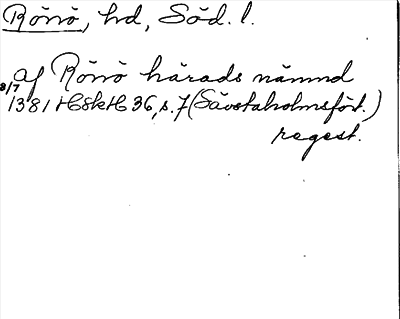 Rönö, hd, Söd. l.
af Rönö härads nämnd
8/7
1381 HSkH 36, s. 7 (Sävstaholmsfört.)
regest.